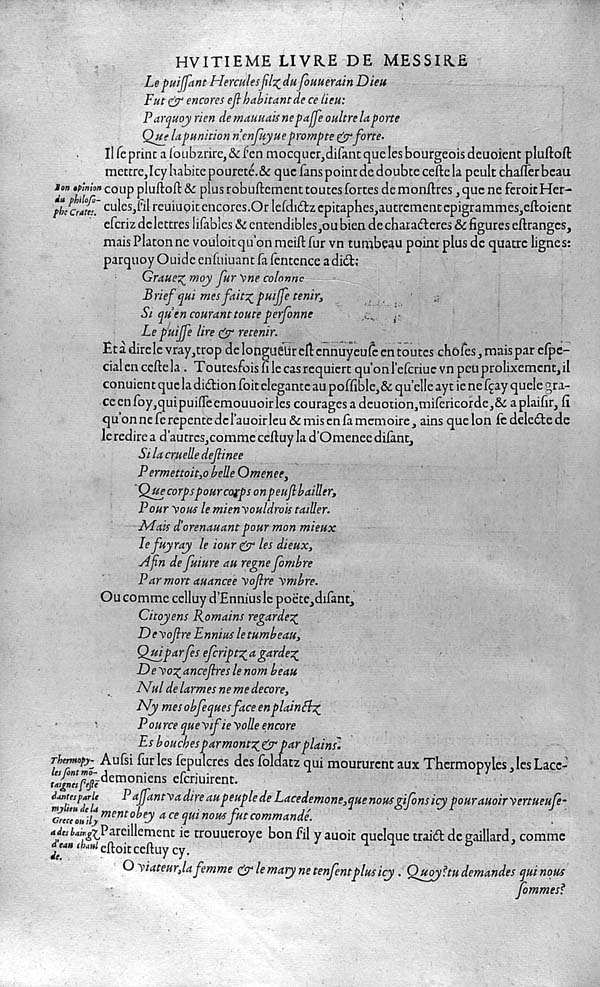 HVITIEME LIVRE DE MESSIRE
Le puiſſant Hercules filz du ſouuerain Dieu
Fut & encores eſt habitant de ce lieu:
Parquoy rien de mauuais ne paſſe oultre la porte
Que la punition n'enſuyue prompte & forte.
Il ſe print a ſoubzrire, & ſ'en mocquer, diſant que les bourgeois deuoient pluſtoſt
mettre, Icy habite poureté. & que ſans point de doubte ceſte la peult chaſſer beau
coup pluſtoſt & plus robuſtement toutes ſortes de monſtres, que ne feroit Her-
cules, ſ'il reuiuoit encores. Or leſdictz epitaphes, autrement epigrammes, eſtoient
eſcriz de lettres liſables & entendibles, ou bien de characteres & figures eſtranges,
mais Platon ne vouloit qu'on meiſt ſur vn tumbeau point plus de quatre lignes:
parquoy Ouide enſuiuant ſa ſentence a dict:
Bon opinion
du philoſo-
phe Crates.
Grauez moy ſur vne colonne
Brief qui mes faitz puiſſe tenir,
Si qu'en courant toute perſonne
Le puiſſe lire & retenir.
Et à dire le vray, trop de longueur eſt ennuyeuſe en toutes choſes, mais par eſpe-
cial en ceſte la. Toutesfois ſi le cas requiert qu'on l'eſcriue vn peu prolixement, il
conuient que la diction ſoit elegante au poſſible, & qu'elle ayt ie ne ſçay quele gra-
ce en ſoy, qui puiſſe emouuoir les courages a deuotion, miſericorde, & a plaiſir, ſi
qu'on ne ſe repente de l'auoir leu & mis en ſa memoire, ains que lon ſe delecte de
le redire a d'autres, comme ceſtuy la d'Omenee diſant,
Si la cruelle deſtinee
Permettoit, o belle Omenee,
Que corps pour corps on peuſt bailler,
Pour vous le mien vouldrois tailler.
Mais d'orenauant pour mon mieux
Ie fuyray le iour & les dieux,
Afin de ſuiure au regne ſombre
Par mort auancee voſtre vmbre.
Ou comme celluy d'Ennius le poëte, diſant,
Citoyens Romains regardez
De voſtre Ennius le tumbeau,
Qui par ſes eſcriptz a gardez
De voz anceſtres le nom beau
Nul de larmes ne me decore,
Ny mes obſeques face en plainctz
Pource que vif ie volle encore
Es bouches par montz & par plains.
Auſsi ſur les ſepulcres des ſoldatz qui moururent aux Thermopyles, les Lace-
demoniens eſcriuirent.
Paſſant va dire au peuple de Lacedemone, que nous giſons icy pour auoir vertueuſe-
ment obey a ce qui nous fut commandé.
Thermopy-
les ſont mõ-
taignes ſ'eſtẽ
dantes par le
mylieu de la
Grece ou il y
a des baingz
d'eau chaul
de.
Pareillement ie trouueroye bon ſ'il y auoit quelque traict de gaillard, comme
eſtoit ceſtuy cy.
O viateur, la femme & le mary ne tenſent plus icy. Quoy? tu demandes qui nous
ſommes?